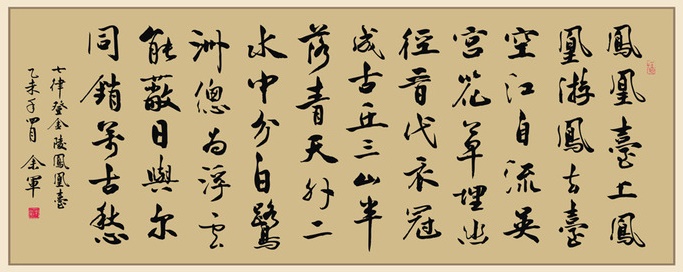 鳳凰臺上鳳
凰游鳳去臺
空江自流英
宮花草埋幽
徑晉代衣冠
成古丘三山半
落青天外二
水中分白鷺
洲總為浮云
能蔽日與尔
同銷萬古愁
七律登金陵鳳凰臺
乙未年四月 余軍